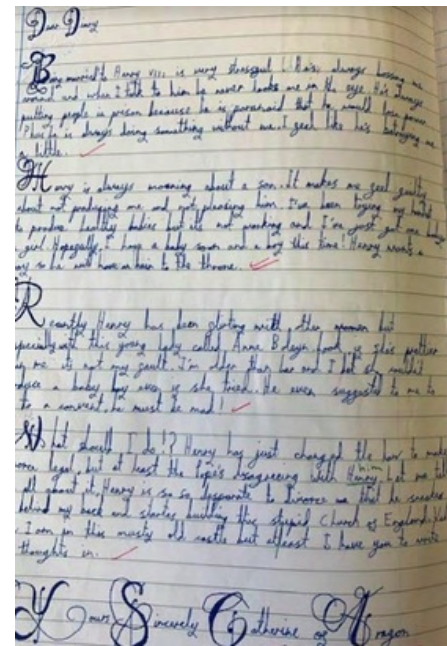 Dear Diary
Being married to Henry VIII is very stressful! He's always bossing me
around and when I talk to him he never looks me in the eye. He's always
putting people in prison because he is paranoid that he would lose power.
Plus, he is always doing something without me. I feel like he's betraying me
a little.
Henry is always moaning about a son. It makes me feel guilty
about not producing one and not pleasing him. I've been trying my hardest
to produce healthy babies but it's not working and I've just got one baby
girl. Hopefully, I have a baby soon and a boy this time! Henry wants a
boy so he will have an heir to the throne.
Recently, Henry has been flirting with other women but
especially with this young lady called Anne Boleyn. is she's prettier
me it's not my fault. I'm older than her and I bet she couldn't
a baby boy even if she tried. He even suggested to me to
to a convent, he must be mad!
What should I do!? Henry has just changed the law to make
legal, but at least the Pope's disagreeing with Henry him. Let me tell
all about it, Henry is so so desperate to divorce me that he sneaked
behind my back and started building this stupid Church of England.
I am in this musty old castle but atleast I have you to write
thoughts in.
Yours Sincerely Catherine of Aragon